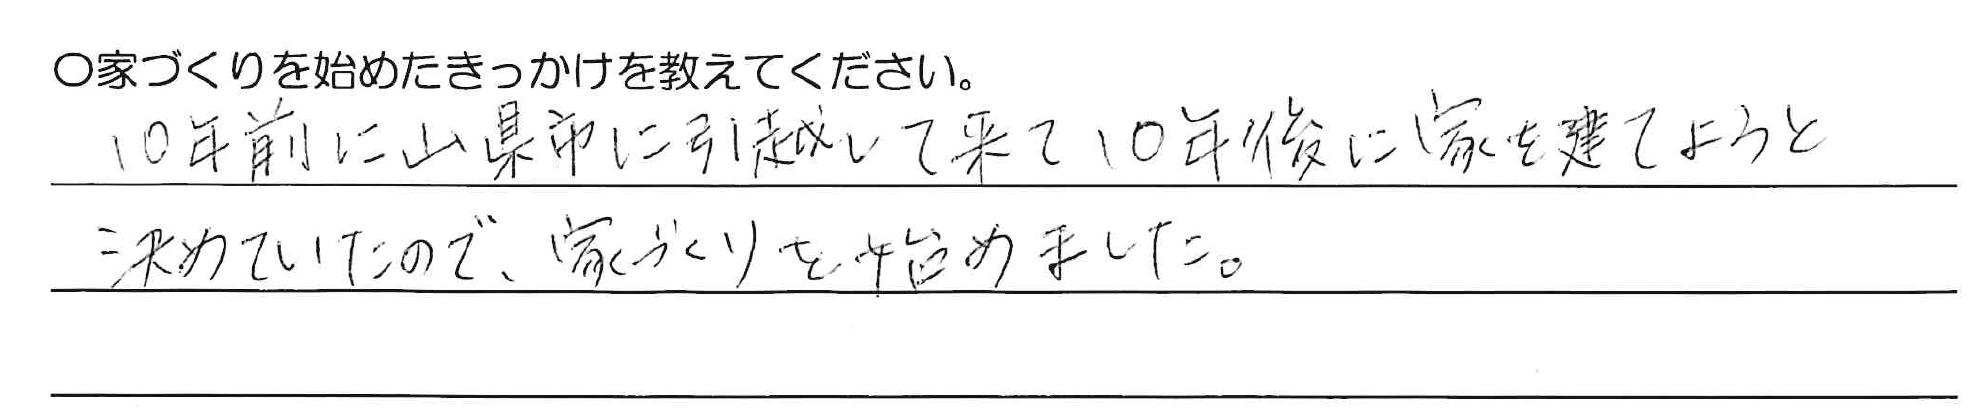 ○家づくりを始めたきっかけを教えてください。
10年前に山県市に引越して来て10年後に家を建てようと
決めていたので、家づくりを始めました。